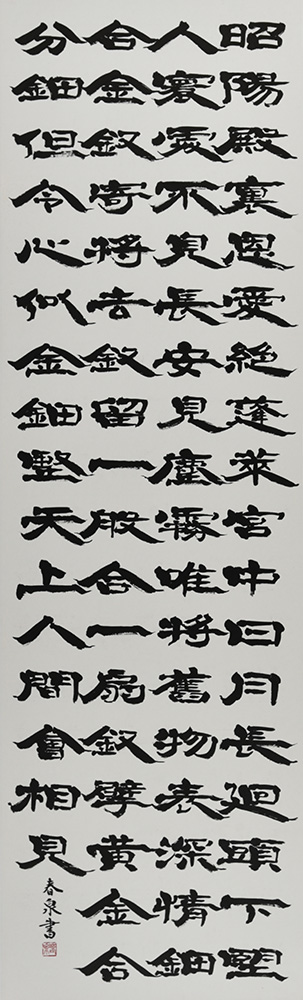 昭陽殿裏恩愛絶蓬萊宮中日月長廻頭下望
人寰處不見長安見塵霧唯將舊物表深情鈿
合金釵寄將去釵留一股合一扇釵擘黄金合
分鈿但令心似金鈿堅天上人間會相見
春泉書